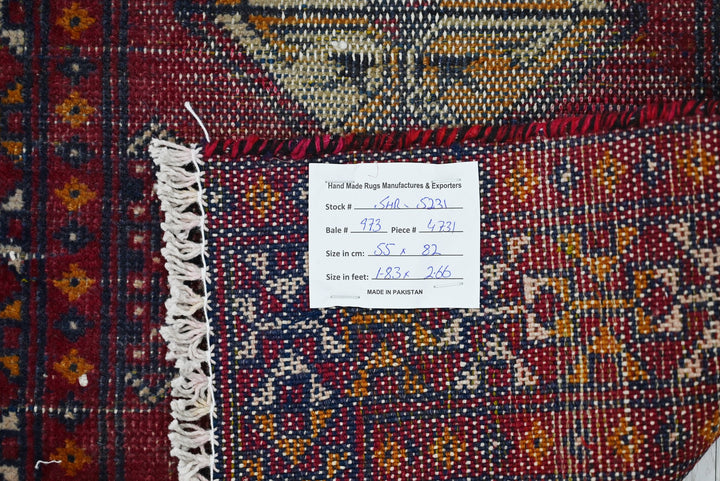 Hand Made Rugs Manufactures & Exporters
Stock # SHR - 5231
Bale # 973 Piece # 4731
Size in cm: 55 x 82
Size in feet: 1-83 x 2-66
MADE IN PAKISTAN